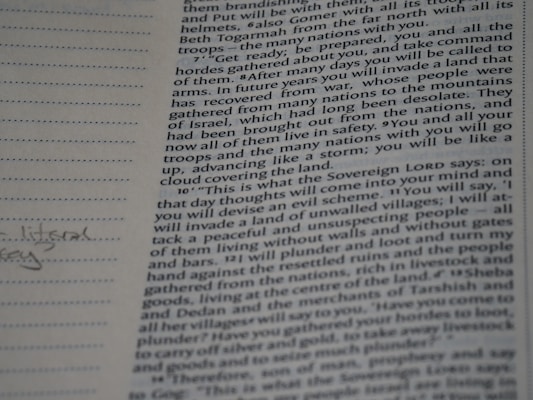 them brandishing
and Put will be with them, all
helmets, ⁶also Gomer with all its troops,
Beth Togarmah from the far north with all its
troops – the many nations with you.
⁷' "Get ready; be prepared, you and all the
hordes gathered about you, and take command
of them. ⁸After many days you will be called to
arms. In future years you will invade a land that
has recovered from war, whose people were
gathered from many nations to the mountains
of Israel, which had long been desolate. They
had been brought out from the nations, and
now all of them live in safety. ⁹You and all your
troops and the many nations with you will go
up, advancing like a storm; you will be like a
cloud covering the land.
¹⁰' "This is what the Sovereign LORD says: on
that day thoughts will come into your mind and
you will devise an evil scheme. ¹¹You will say, 'I
will invade a land of unwalled villages; I will at-
tack a peaceful and unsuspecting people – all
of them living without walls and without gates
and bars. ¹²I will plunder and loot and turn my
hand against the resettled ruins and the people
gathered from the nations, rich in livestock and
goods, living at the centre of the land.' ¹³Sheba
and Dedan and the merchants of Tarshish and
all her villages will say to you, 'Have you come to
plunder? Have you gathered your hordes to loot,
to carry off silver and gold, to take away livestock
and goods and to seize much plunder?' "
¹⁴'Therefore, son of man, prophesy and say
to Gog: "This is what the Sovereign LORD says:
my people Israel are living in
- literal